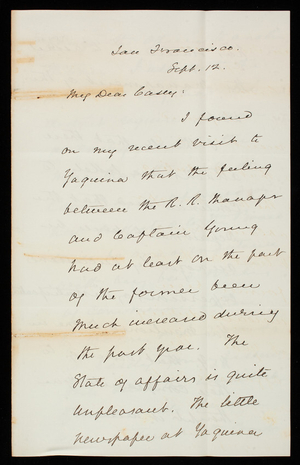 San Francisco.
Sept. 12.
My Dear Casey:
I found
on my recent visit to
Yaquina that the feeling
between the R. R. Manager
and Captain Young
had at least on the part
of the former been
much increased during
the past year. The
State of affairs is quite
unpleasant. The little
newspaper at Yaquina